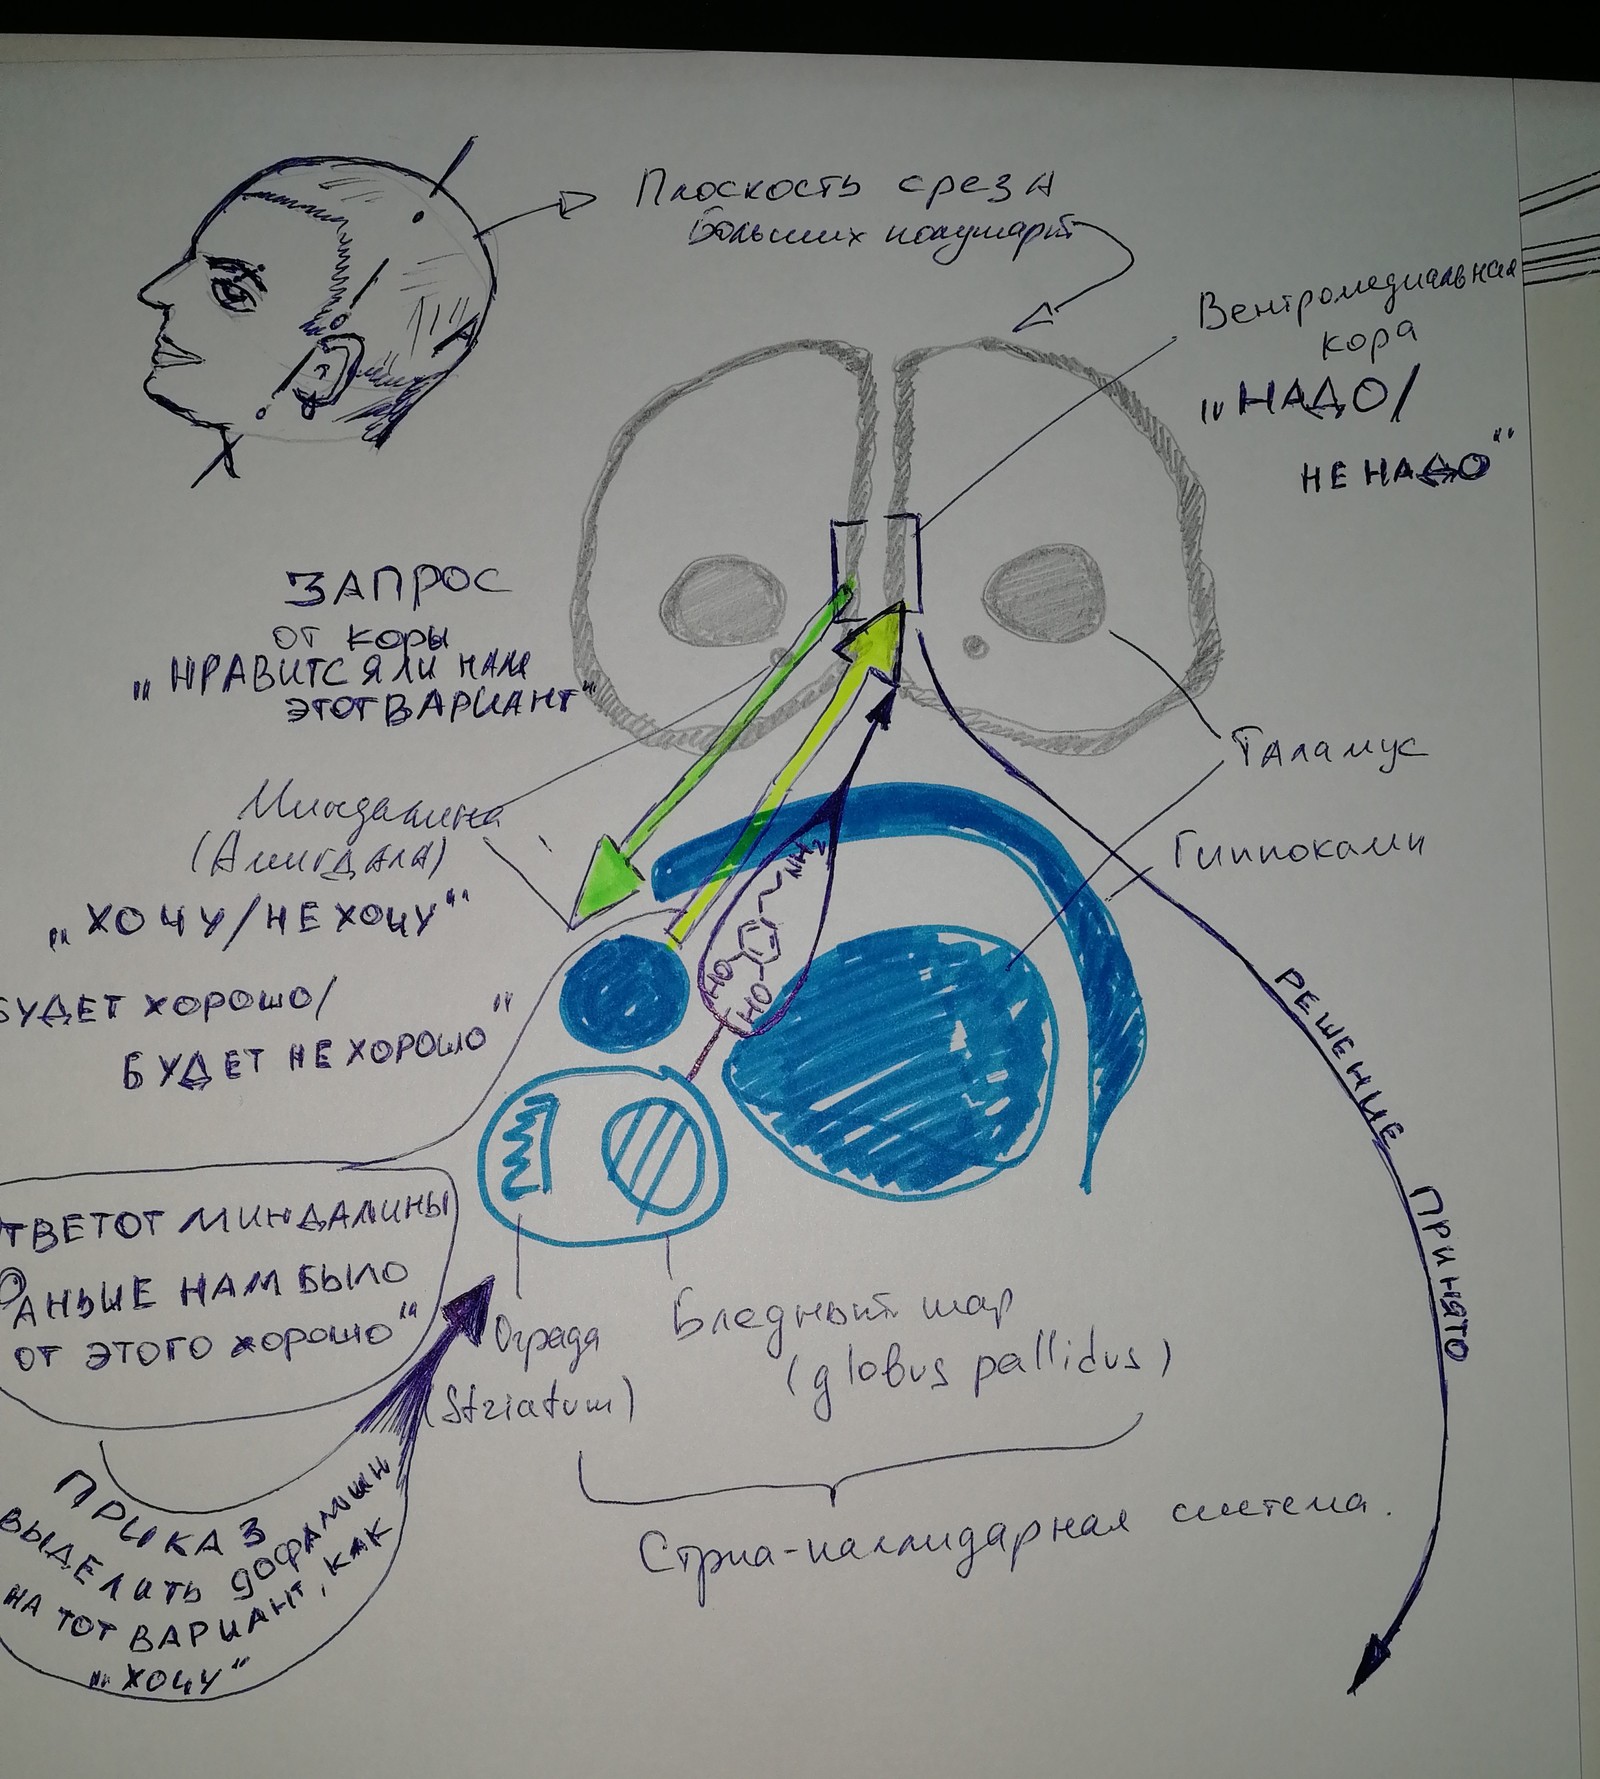 Плоскость среза
Больших полушарий
Вентромедиальная
кора
„НАДО/
НЕ НАДО“
ЗАПРОС
ОТ КОРЫ
„НРАВИТСЯ ЛИ НАМ
ЭТОТ ВАРИАНТ“
Миндалина
(Амигдала)
„ХОЧУ/НЕ ХОЧУ“
БУДЕТ ХОРОШО/
БУДЕТ НЕ ХОРОШО"
Таламус
Гиппокамп
NH2
HO
HO
РЕШЕНИЕ ПРИНЯТО
ОТВЕТ ОТ МИНДАЛИНЫ
РАНЬШЕ НАМ БЫЛО
ОТ ЭТОГО ХОРОШО“
Ограда
(Striatum)
Бледный шар
(globus pallidus)
Стриа-паллидарная система.
ПРИКАЗ
ВЫДЕЛИТЬ ДОФАМИН
НА ТОТ ВАРИАНТ, КАК
„ХОЧУ“